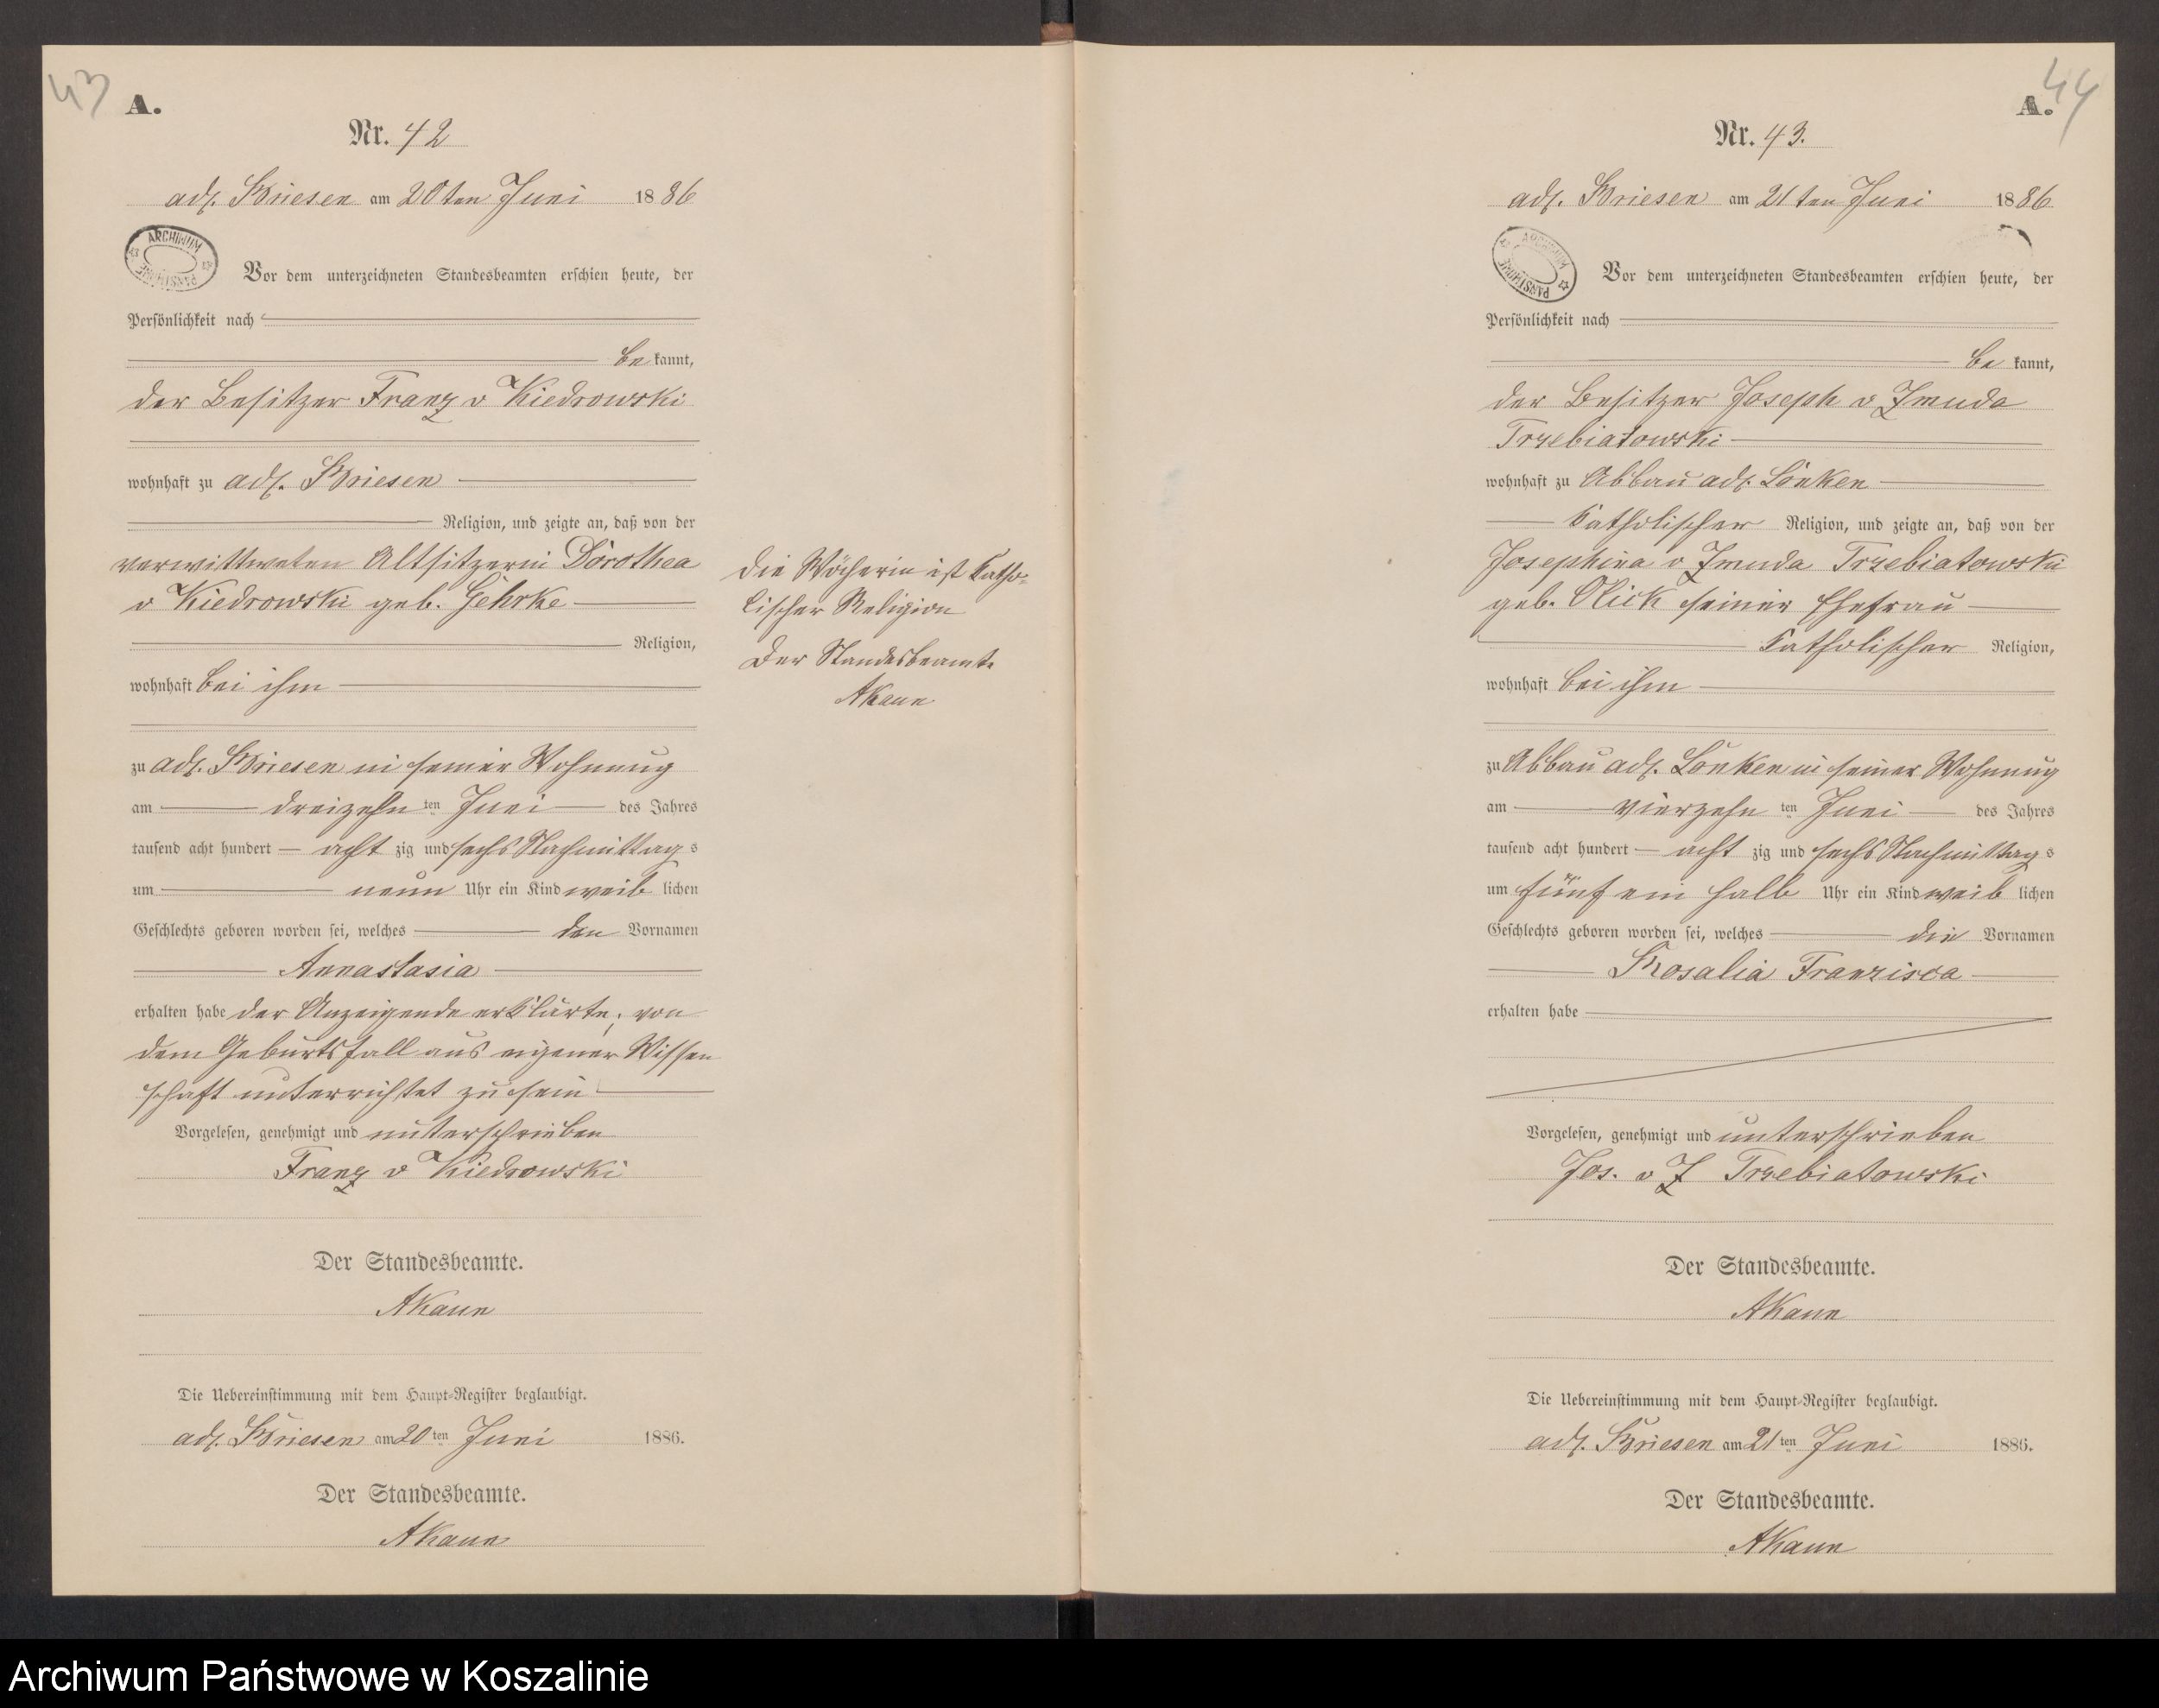 43
A.
Nr. 42
adl. Briesen am 20ten Juni 1886
ARCHIWUM PAŃSTWOWE
Vor dem unterzeichneten Standesbeamten erschien heute, der
Persönlichkeit nach
be kannt,
der Besitzer Franz v Kiedrowski
wohnhaft zu adl. Briesen
Religion, und zeigte an, daß von der
verwittweten Altsitzerin Dorothea
v Kiedrowski geb. Gehrke
Religion,
wohnhaft bei ihm
zu adl. Briesen in seiner Wohnung
am dreizehn ten Juni des Jahres
tausend acht hundert acht zig und sechs Nachmittag s
um neun Uhr ein Kind weib lichen
Geschlechts geboren worden sei, welches den Vornamen
Annastasia
erhalten habe der Anzeigende erklärte, von
dem Geburtsfall aus eigener Wissen
schaft unterrichtet zu sein
Vorgelesen, genehmigt und unterschrieben
Franz v Kiedrowski
Der Standesbeamte.
AKaun
Die Uebereinstimmung mit dem Haupt-Register beglaubigt.
adl. Briesen am 20 ten Juni 1886.
Der Standesbeamte.
AKaun
Die Wöcherin ist Katho-
lischer Religion
Der Standesbeamte
AKaun
44
A.
Nr. 43.
adl. Briesen am 21 ten Juni 1886
ARCHIWUM PAŃSTWOWE
Vor dem unterzeichneten Standesbeamten erschien heute, der
Persönlichkeit nach
be kannt,
der Besitzer Joseph v Zmuda
Trzebiatowski
wohnhaft zu Abbau adl. Lonken
Katholischer Religion, und zeigte an, daß von der
Josephina v Zmuda Trzebiatowski
geb. Olick seiner Ehefrau
Katholischer Religion,
wohnhaft bei ihm
zu Abbau adl. Lonken in seiner Wohnung
am vierzehn ten Juni des Jahres
tausend acht hundert acht zig und sechs Nachmittag s
um fünf ein halb Uhr ein Kind weib lichen
Geschlechts geboren worden sei, welches die Vornamen
Rosalia Franzisca
erhalten habe
Vorgelesen, genehmigt und unterschrieben
Jos. v Z Trzebiatowski
Der Standesbeamte.
AKaun
Die Uebereinstimmung mit dem Haupt-Register beglaubigt.
adl. Briesen am 21 ten Juni 1886.
Der Standesbeamte.
AKaun
Archiwum Państwowe w Koszalinie